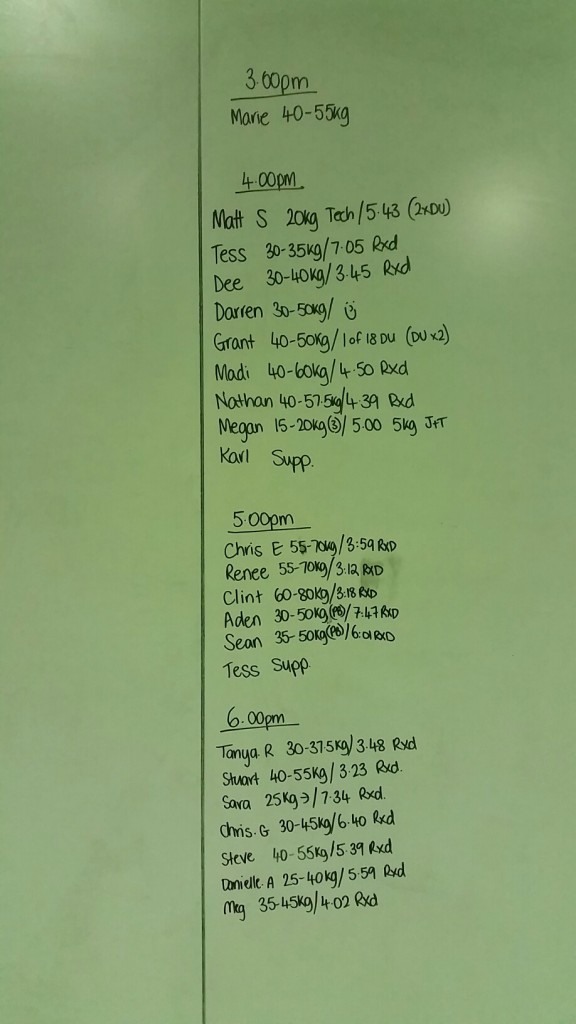 3.00pm
Marie 40-55kg
4.00pm
Matt S 20kg Tech/5.43 (2xDU)
Tess 30-35kg/7.05 Rxd
Dee 30-40kg/3.45 Rxd
Darren 30-50kg/ ☺
Grant 40-50kg/1 of 18 DU (DUx2)
Madi 40-60kg/4.50 Rxd
Nathan 40-57.5kg/4.39 Rxd
Megan 15-20kg(3)/5.00 5kg J+T
Karl Supp.
5.00pm
Chris E 55-70kg/3:59 RXD
Renee 55-70kg/3:12 RXD
Clint 60-80kg/3:18 RXD
Aden 30-50kg(PB)/7:47 RXD
Sean 35-50kg(PB)/6:01 RXD
Tess Supp.
6.00pm
Tanya.R 30-37.5kg/3.48 Rxd
Stuart 40-55kg/3.23 Rxd.
Sara 25kg→/7.34 Rxd.
Chris.G 30-45kg/6.40 Rxd
Steve 40-55kg/5.39 Rxd
Danielle.A 25-40kg/5.59 Rxd
Meg 35-45kg/4.02 Rxd